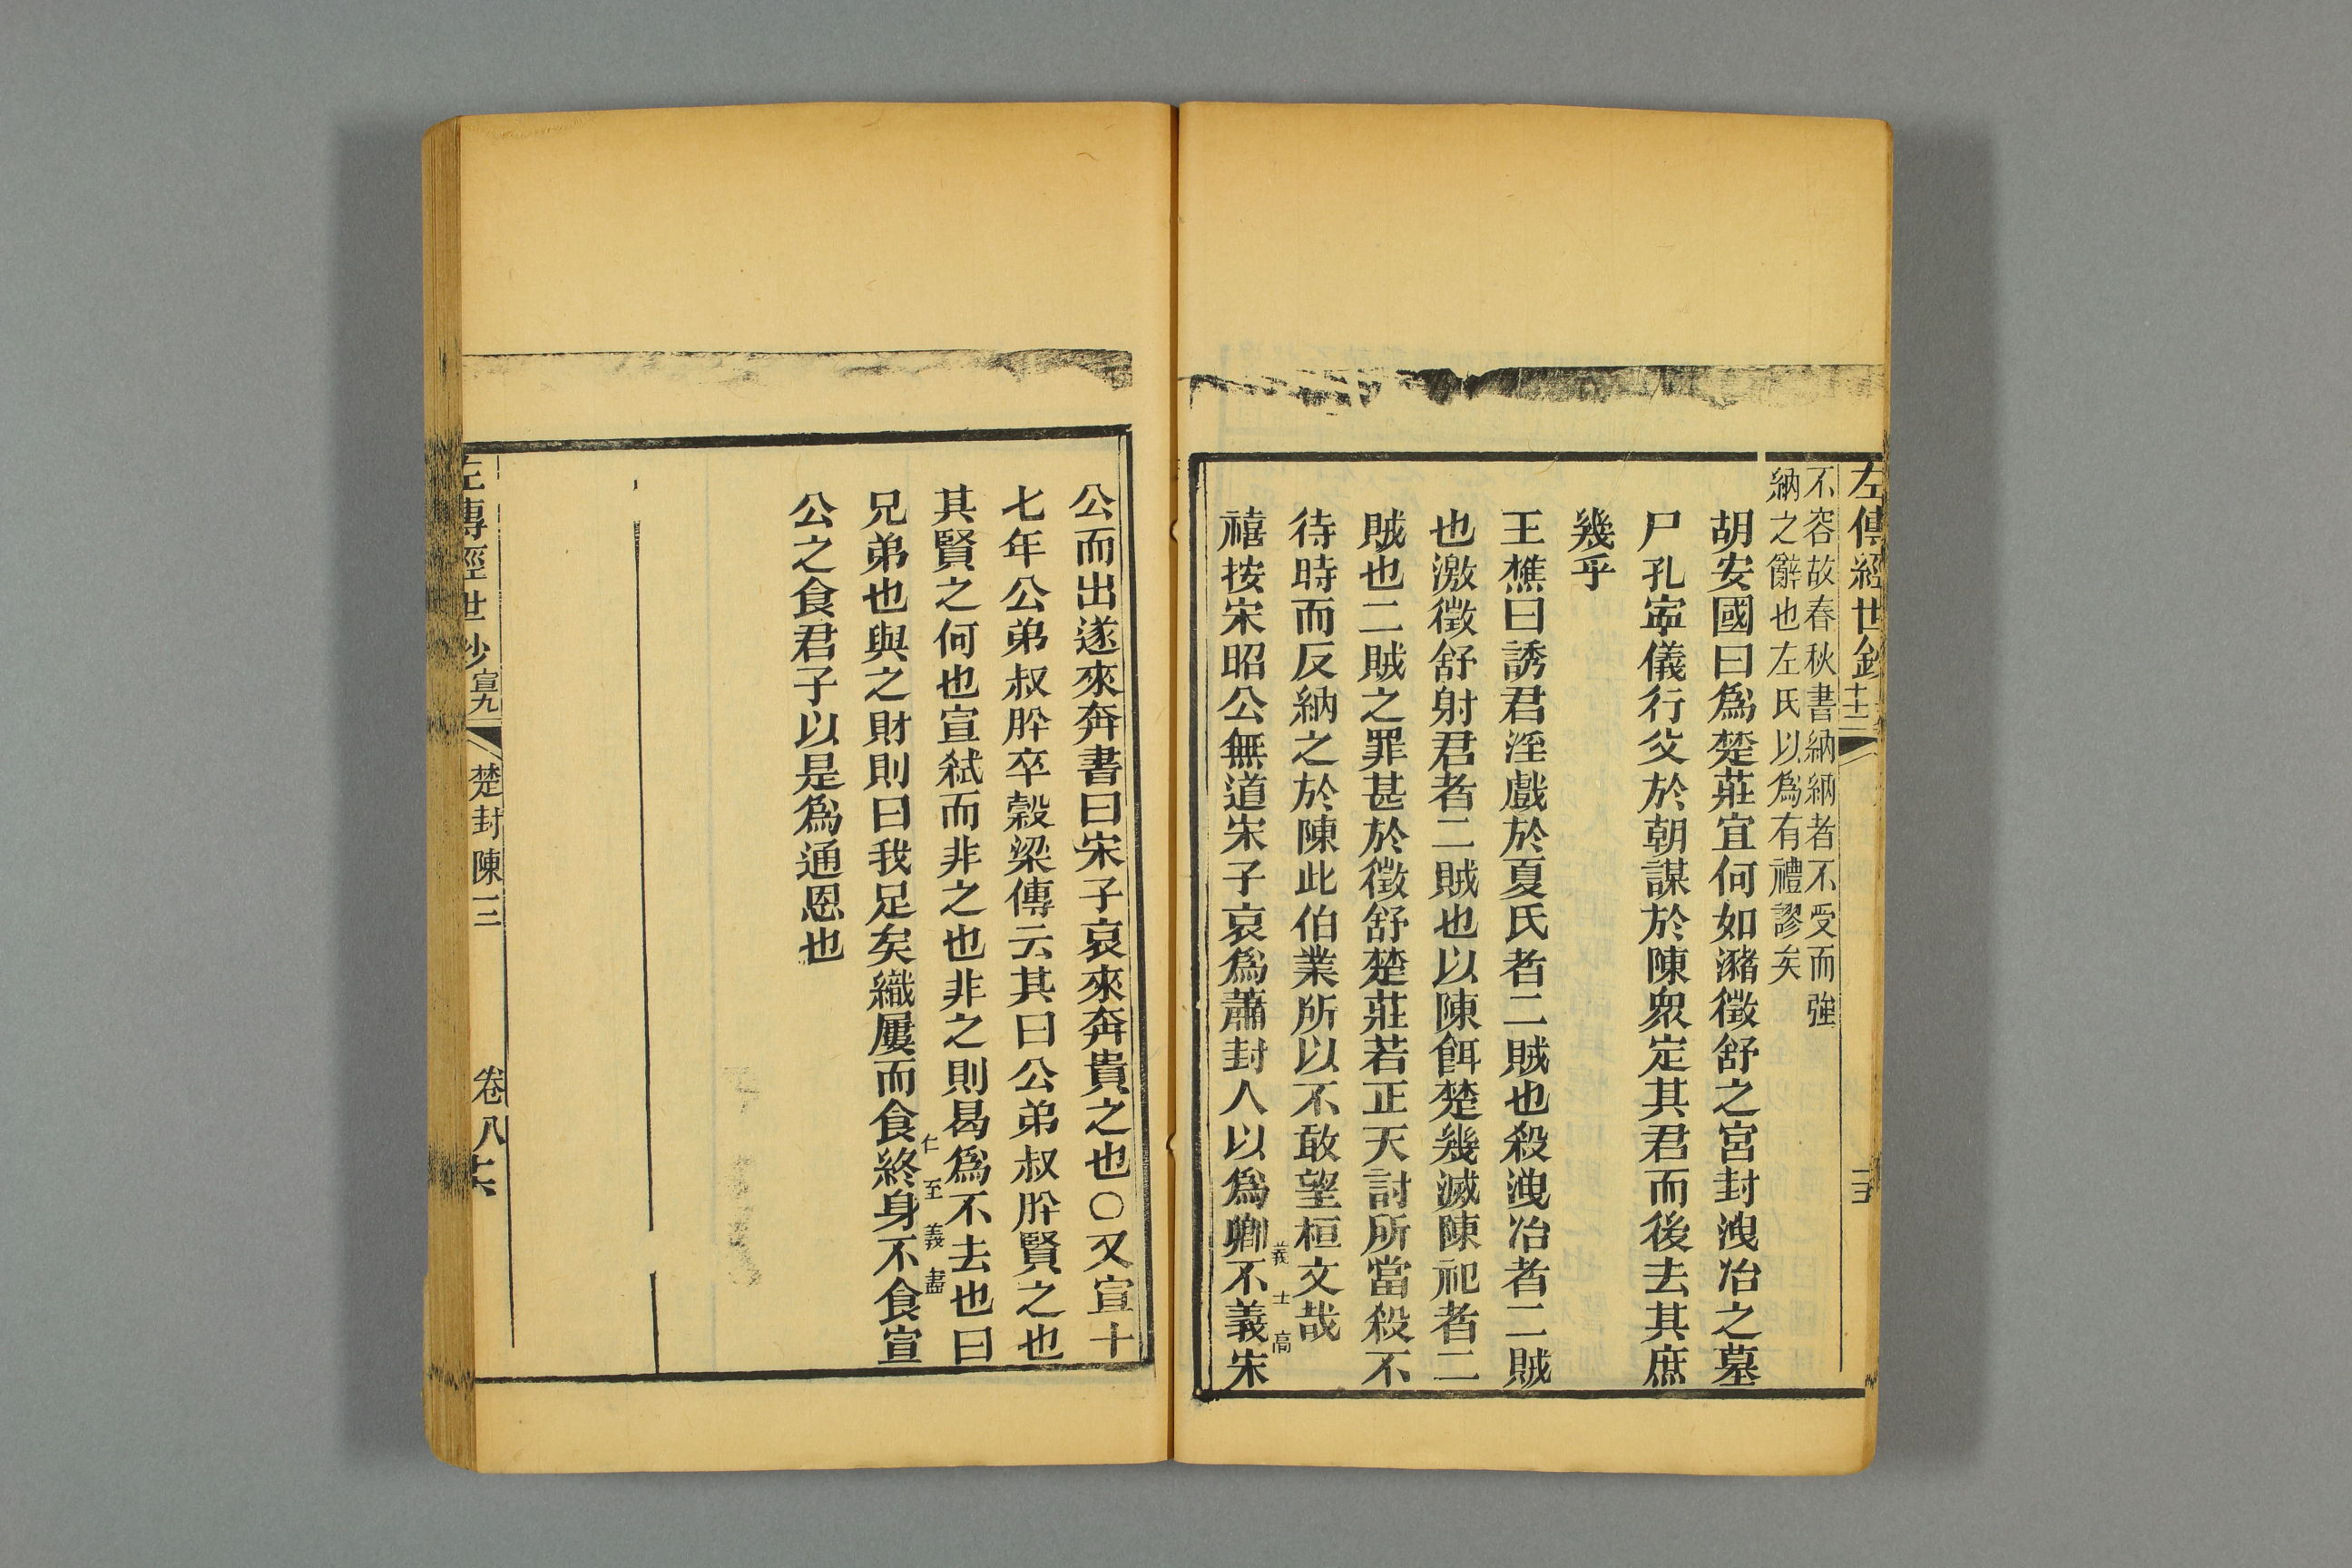 左傳經世鈔
不容故春秋書納納者不受而強
納之辭也左氏以爲有禮謬矣
胡安國曰爲楚莊宜何如瀦徵舒之宮封洩冶之墓
尸孔寧儀行父於朝謀於陳衆定其君而後去其庶
幾乎
王樵曰誘君淫戲於夏氏者二賊也殺洩冶者二賊
也激徵舒射君者二賊也以陳餌楚幾滅陳祀者二
賊也二賊之罪甚於徵舒楚莊若正天討所當殺不
待時而反納之於陳此伯業所以不敢望桓文哉
義士高
禧按宋昭公無道宋子哀爲蕭封人以爲卿不義宋
公而出遂來奔書曰宋子哀來奔貴之也○又宣十
七年公弟叔肸卒穀梁傳云其曰公弟叔肸賢之也
其賢之何也宣弒而非之也非之則曷爲不去也曰
仁至義盡
兄弟也與之財則曰我足矣織屨而食終身不食宣
公之食君子以是爲通恩也
左傳經世鈔 宣九 楚封陳三 卷八